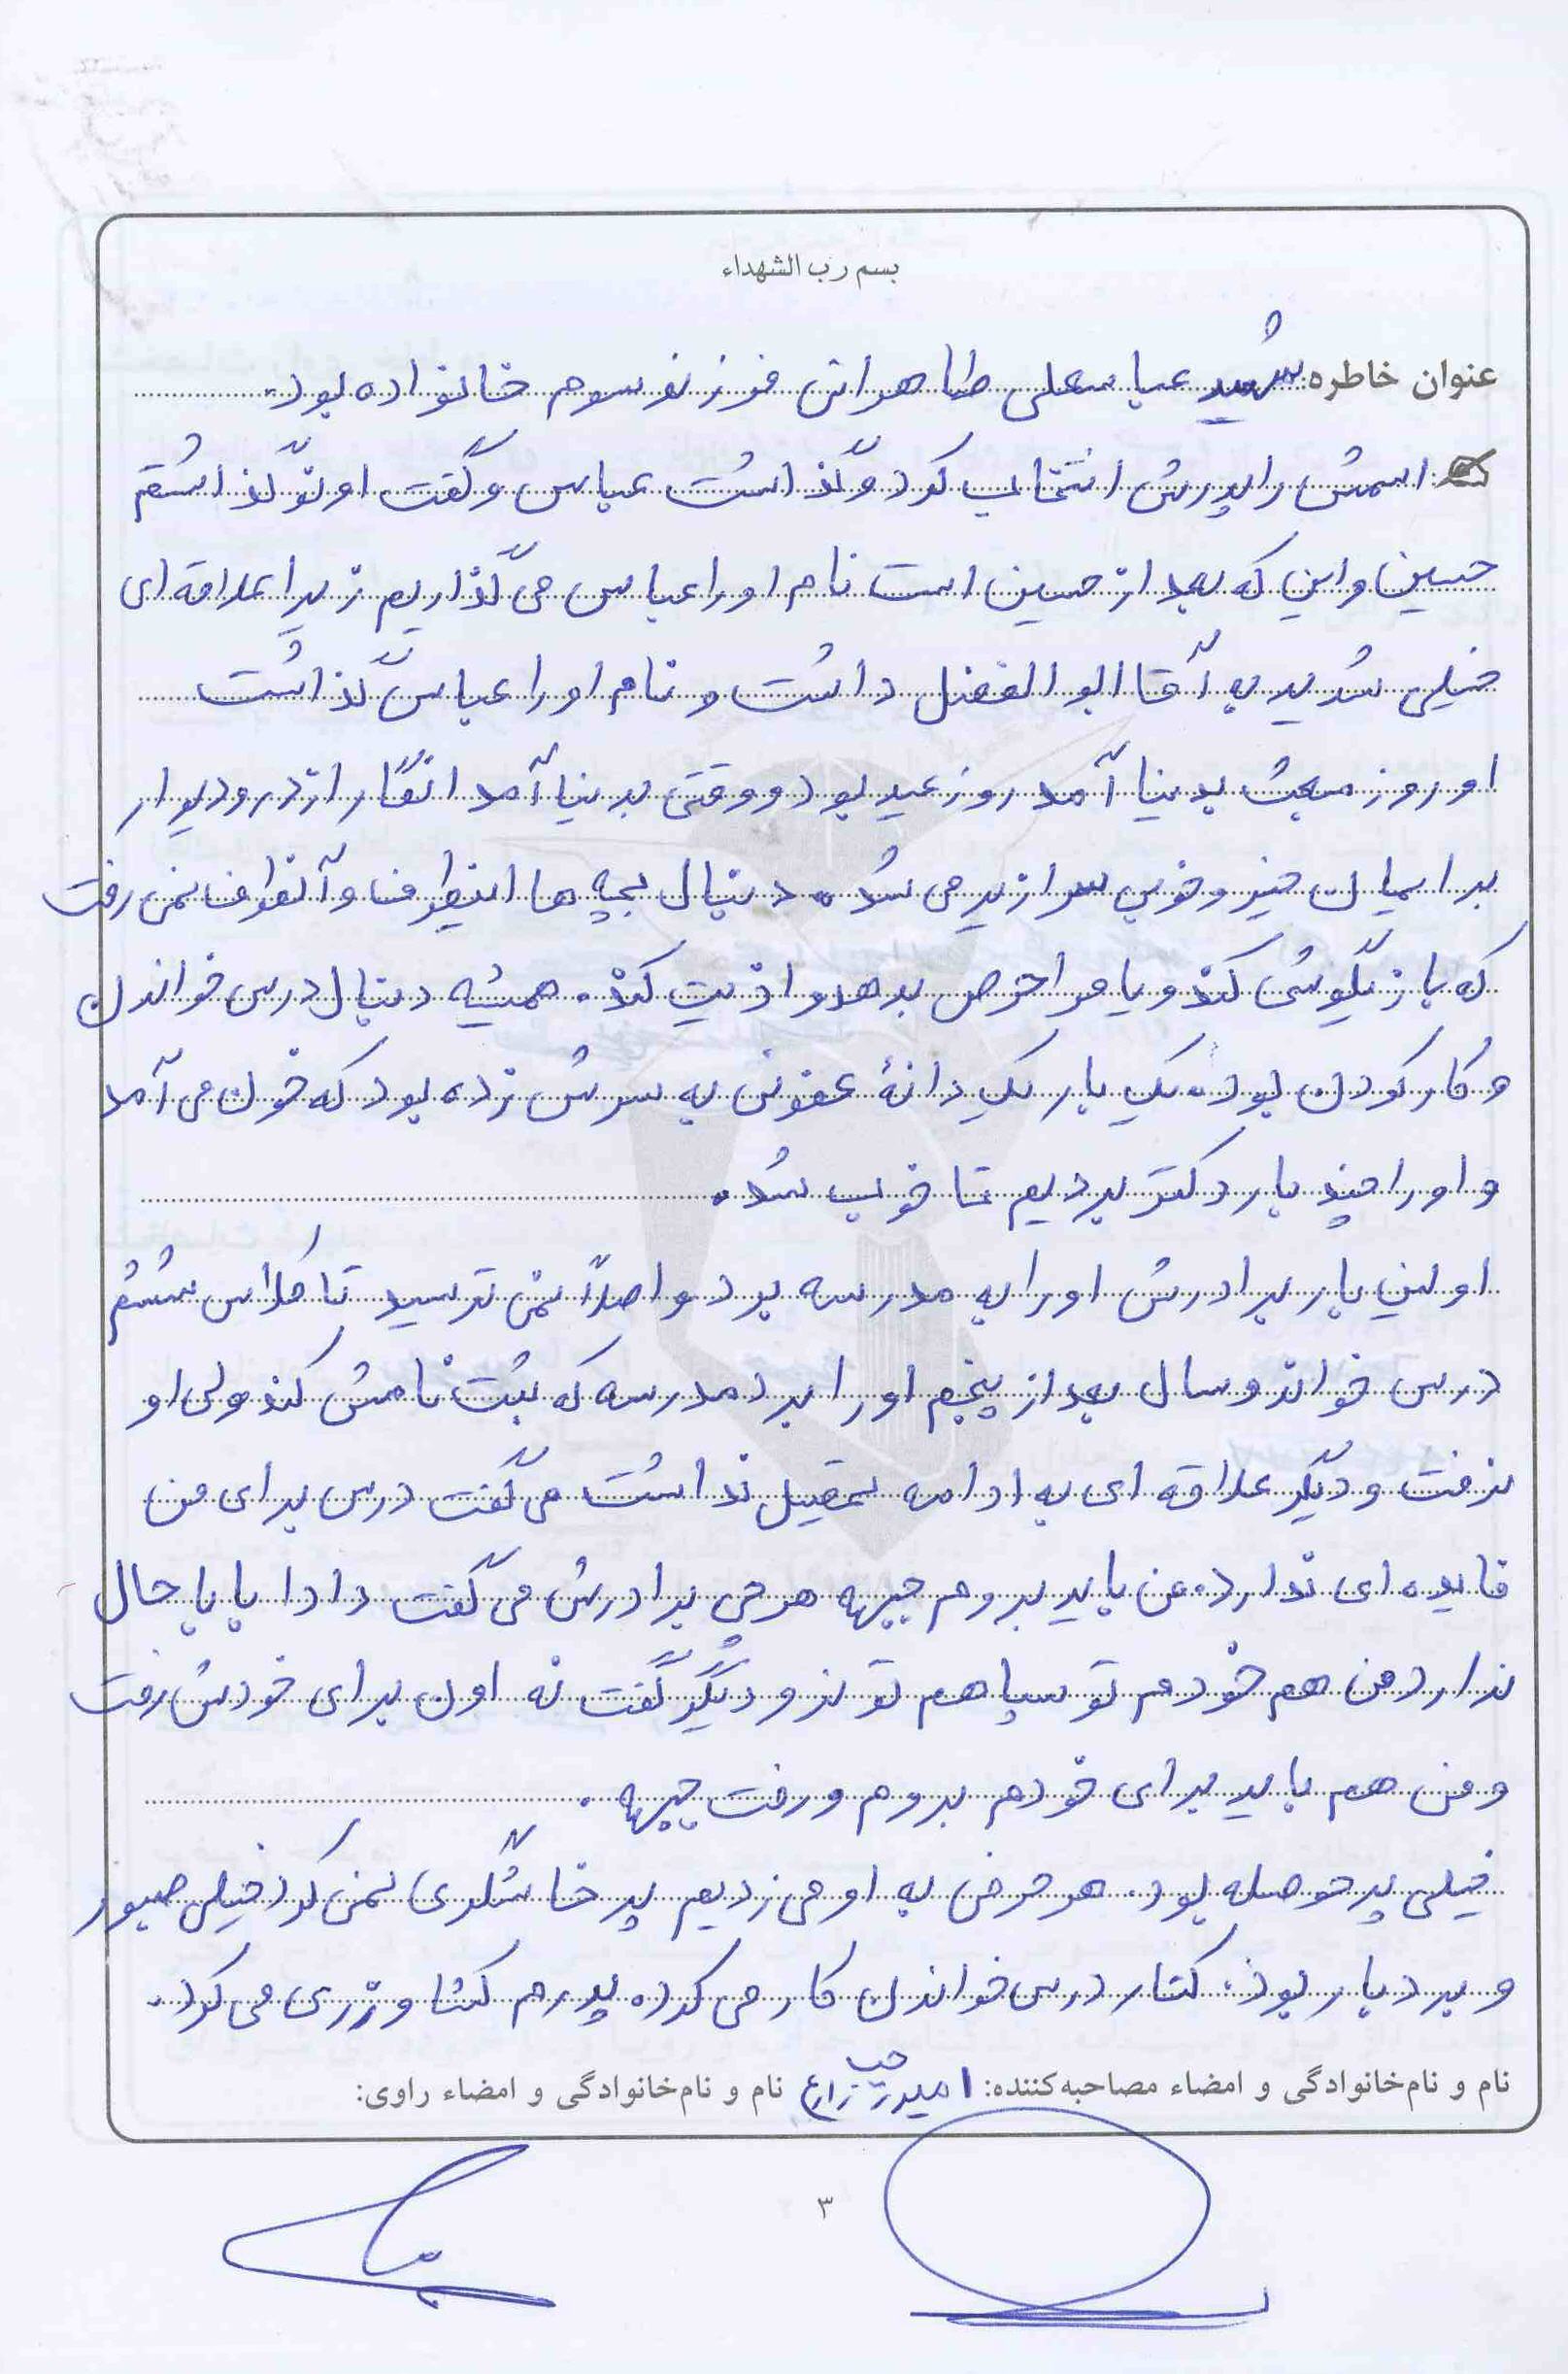 بسم رب الشهداء
عنوان خاطره: شهید عباسعلی طاهرانی فرزند سوم خانواده بود.
اسمش را پدرش انتخاب کرد و گذاشت عباس و گفت اونو گذاشتم
حسین و این که بعد از حسین است نام او را عباس می گذاریم زیرا علاقه ای
خیلی شدید به آقا ابوالفضل داشت و نام او را عباس گذاشت
او روز مبعث بدنیا آمد روز عید بود و وقتی بدنیا آمد انگار از در و دیوار
بر ایمان خیر و خوبی سرازیر می شد. دنبال بچه ها اینطرف و آنطرف نمی رفت
که بازیگوشی کند و یا مرا حرص بدهد و اذیت کند. همیشه دنبال درس خواندن
و کار کردن بود. یک بار یک دانهٔ عفونی به سرش زده بود که خون می آمد
و او را چند بار دکتر بردیم تا خوب شد.
اولین بار برادرش او را به مدرسه برد و اصلاً نمی ترسید تا کلاس ششم
درس خواند و سال بعد از پنجم او را برد مدرسه که ثبت نامش کند ولی او
نرفت و دیگر علاقه ای به ادامه تحصیل نداشت می گفت درس برای من
فایده ای ندارد. من باید بروم جبهه هر چی برادرش می گفت دادا بابا حال
ندارد من هم خودم تو سپاهم تو نرو دیگر گفت نه اون برای خودش رفت
و من هم باید برای خودم بروم و رفت جبهه.
خیلی پر حوصله بود. هر حرفی به او می زدیم پرخاشگری نمی کرد خیلی صبور
و بردبار بود. کنار درس خواندن کار می کرد. پدرم کشاورزی می کرد.
نام و نام خانوادگی و امضاء مصاحبه کننده: امیر زارع نام و نام خانوادگی و امضاء راوی:
۳